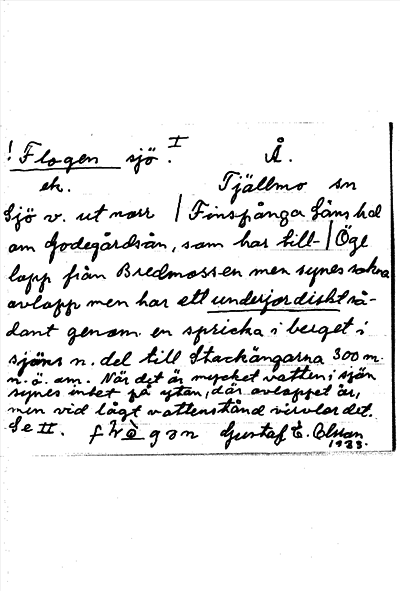 ! Flogen sjö. I Å.
ek. Tjällmo sn
Sjö v. ut norr | Finspånga läns hd
om Godegårdsån, som har till- | Öge
lopp från Bredmossen men synes sakna
avlopp men har ett underjordiskt så-
dant genom en spricka i berget i
sjöns n. del till Stackängarna 300 m.
n. ö. om. När det är mycket vatten i sjön
synes intet på ytan, där avloppet är,
men vid lågt vattenstånd virvlar det.
Se II. Gustaf E. Olsson
1933.